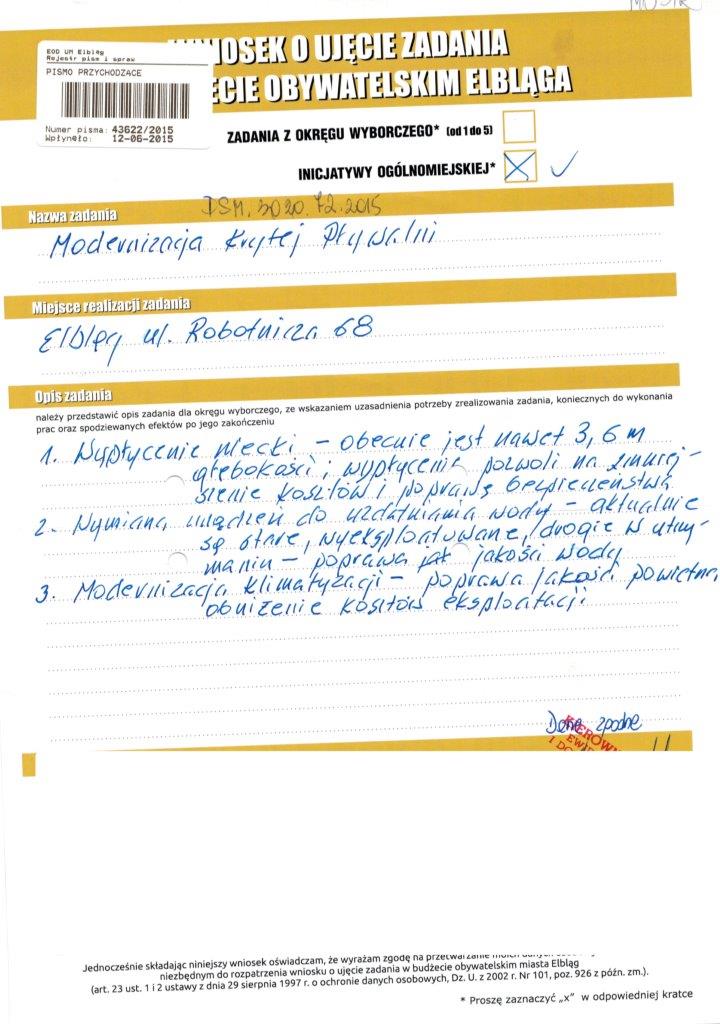 EOD UM Elbląg
Rejestr pism i spraw
PISMO PRZYCHODZĄCE
Numer pisma: 43622/2015
Wpłynęło: 12-06-2015
WNIOSEK O UJĘCIE ZADANIA
BUDŻECIE OBYWATELSKIM ELBLĄGA
ZADANIA Z OKRĘGU WYBORCZEGO* (od 1 do 5)
INICJATYWY OGÓLNOMIEJSKIEJ*
DSM. 3020.72.2015
Nazwa zadania
Modernizacja Krytej Pływalni
Miejsce realizacji zadania
Elbląg ul. Robotnicza 68
Opis zadania
należy przedstawić opis zadania dla okręgu wyborczego, ze wskazaniem uzasadnienia potrzeby zrealizowania zadania, koniecznych do wykonania
prac oraz spodziewanych efektów po jego zakończeniu
1. Wypłycenie niecki – obecnie jest nawet 3,6 m
głębokości; wypłycenie pozwoli na zmniej-
szenie kosztów i poprawę bezpieczeństwa
2. Wymiana urządzeń do uzdatniania wody – aktualnie
są stare, wyeksploatowane, drogie w utrzy-
maniu – poprawa jakości wody
3. Modernizacja klimatyzacji – poprawa jakości powietrza,
obniżenie kosztów eksploatacji.
Dane zgodne
Jednocześnie składając niniejszy wniosek oświadczam, że wyrażam zgodę na przetwarzanie moich danych
niezbędnym do rozpatrzenia wniosku o ujęcie zadania w budżecie obywatelskim miasta Elbląg
(art. 23 ust. 1 i 2 ustawy z dnia 29 sierpnia 1997 r. o ochronie danych osobowych, Dz. U. z 2002 r. Nr 101, poz. 926 z późn. zm.).
* Proszę zaznaczyć „x” w odpowiedniej kratce